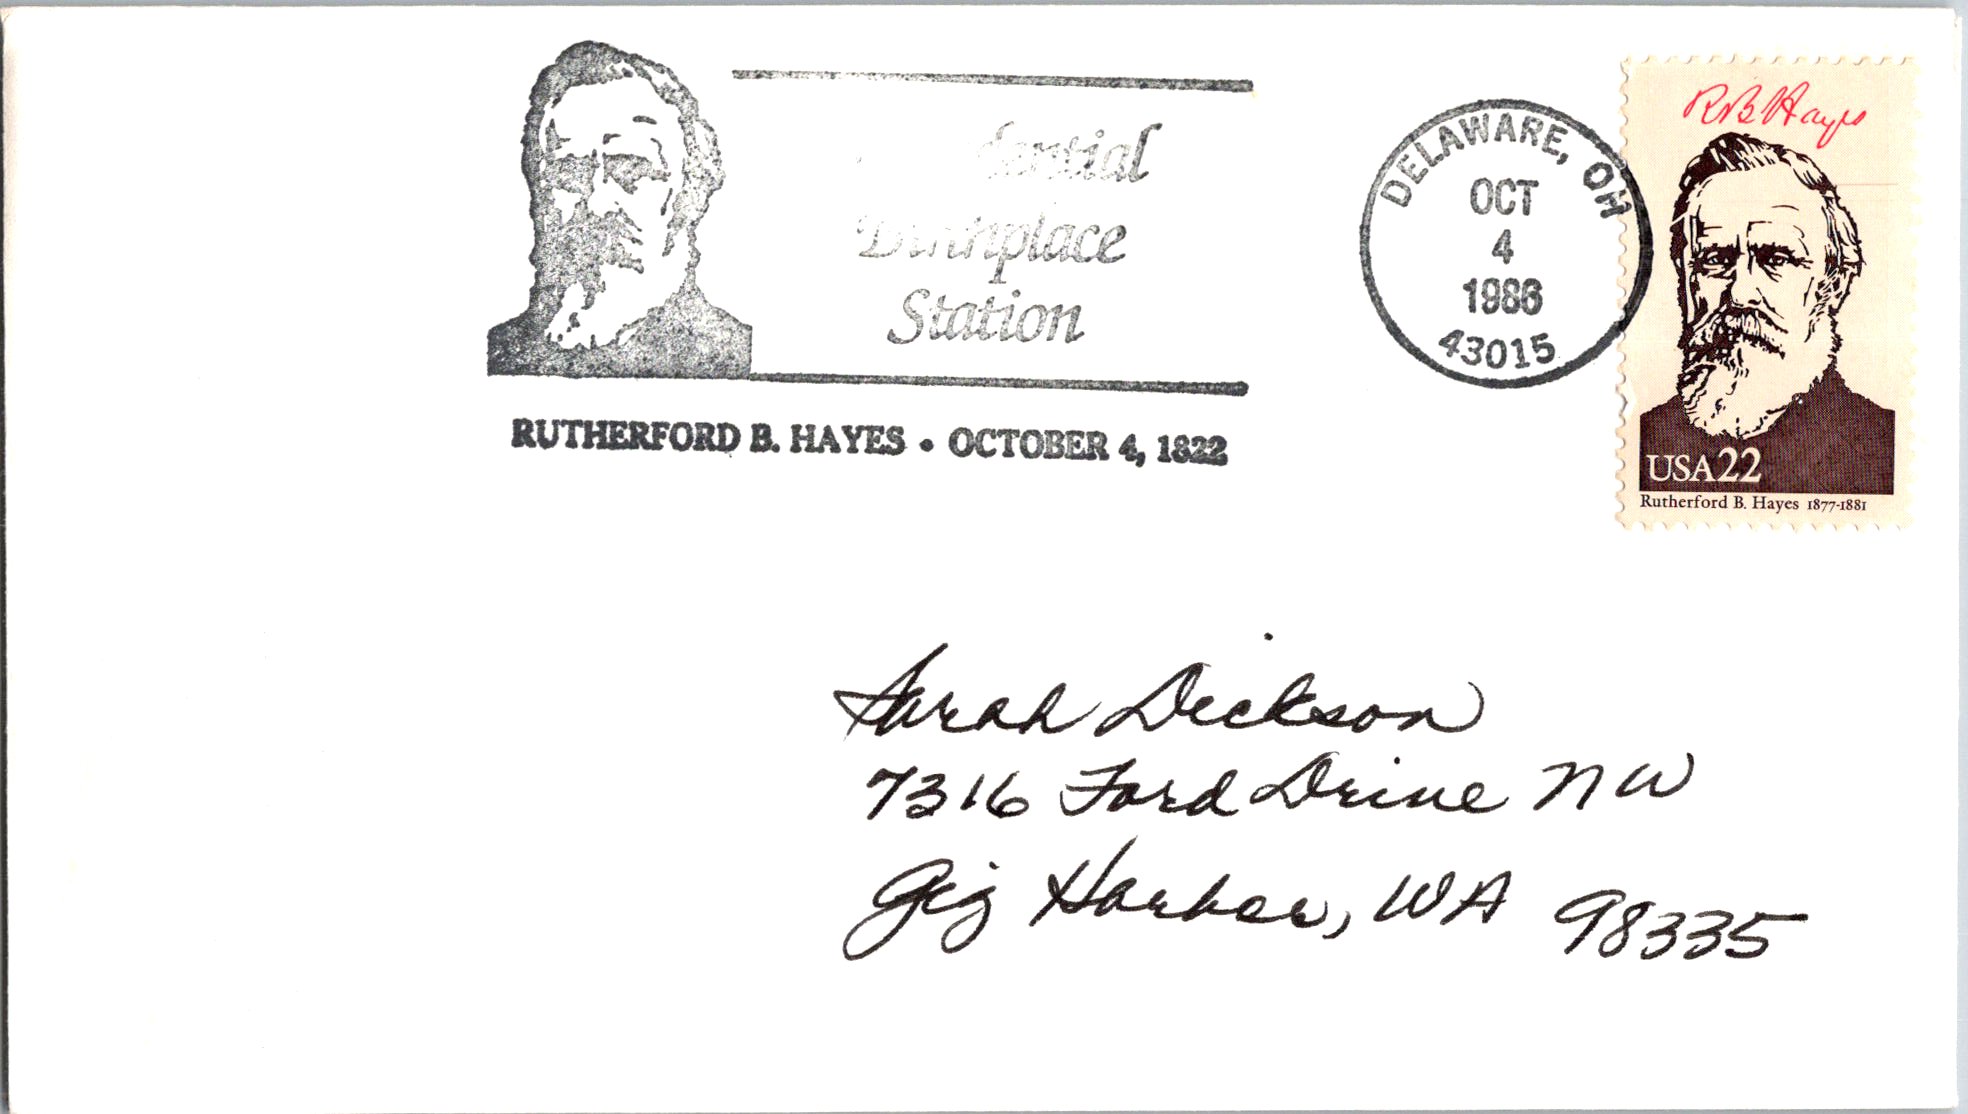 dential
Birthplace
Station
RUTHERFORD B. HAYES • OCTOBER 4, 1822
DELAWARE, OH
OCT
4
1986
43015
RB Hayes
USA22
Rutherford B. Hayes 1877-1881
Sarah Dickson
7316 Ford Drive NW
Gig Harbor, WA 98335